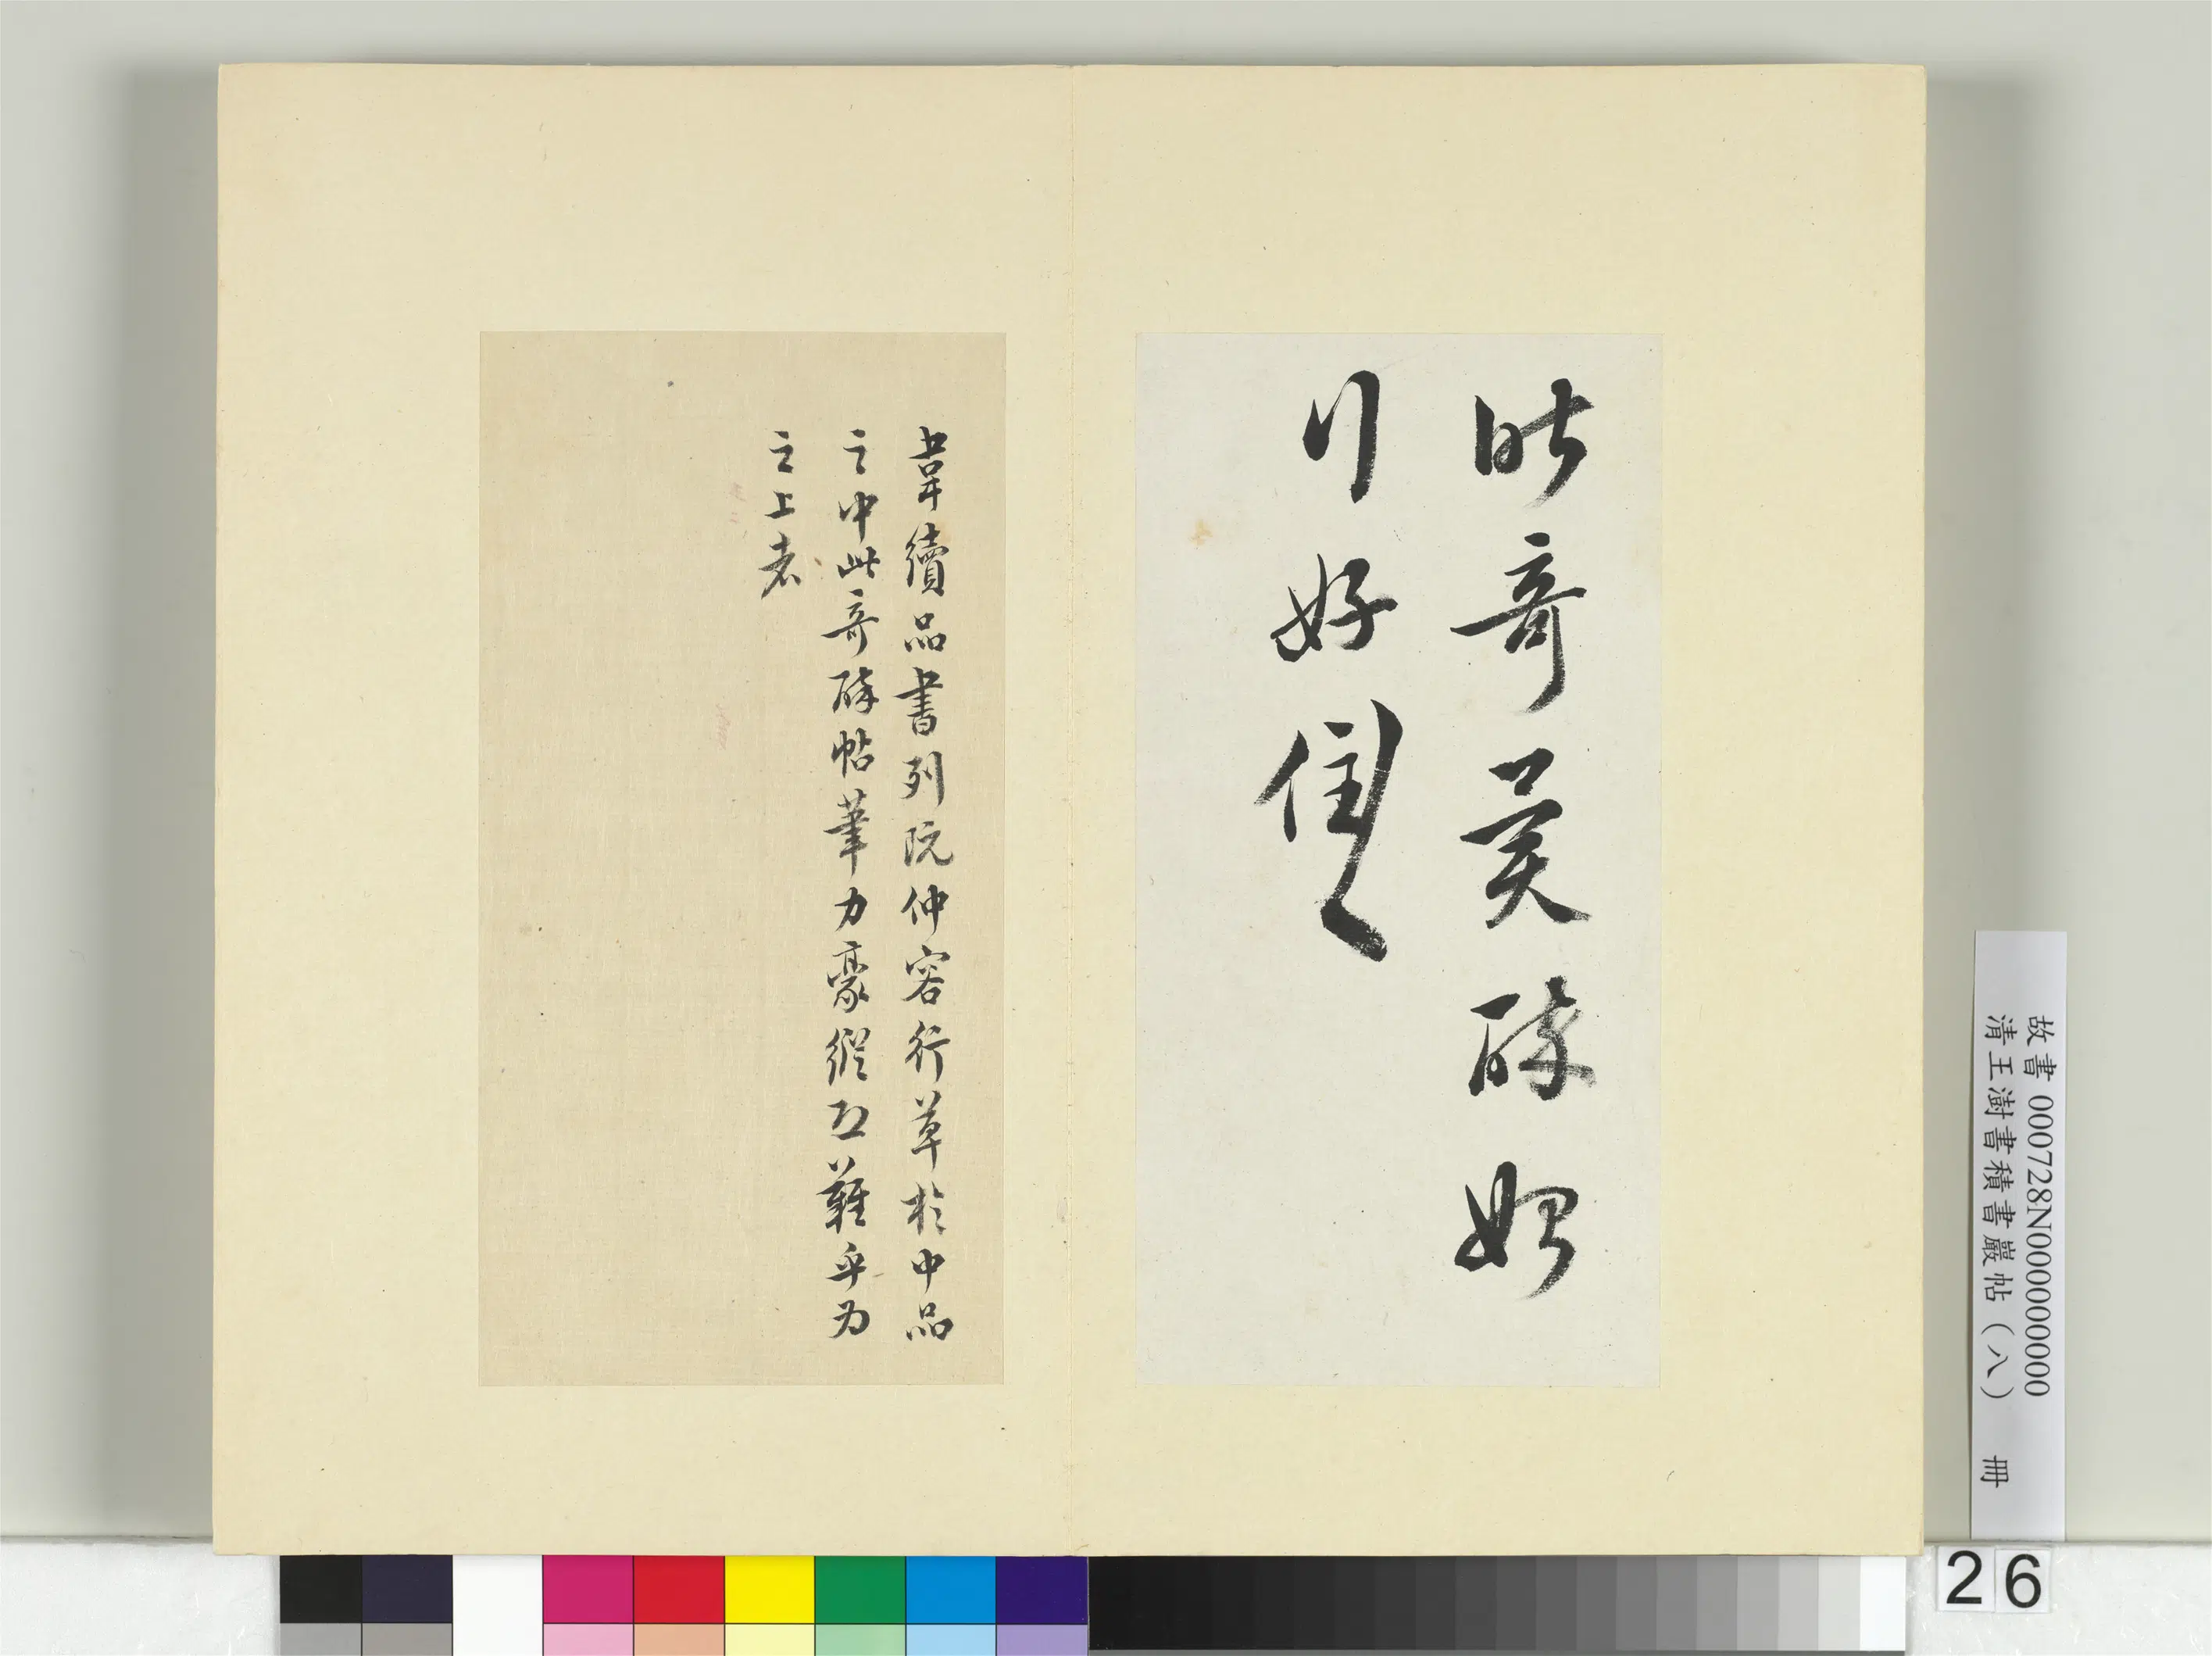 奇異酥
行好佳
韋續品書列阮仲容行草於中品
之中此奇酥帖筆力豪縱正難乎為
之上者
故書 000728N000000000
清王澍書積書巖帖（八） 冊
26